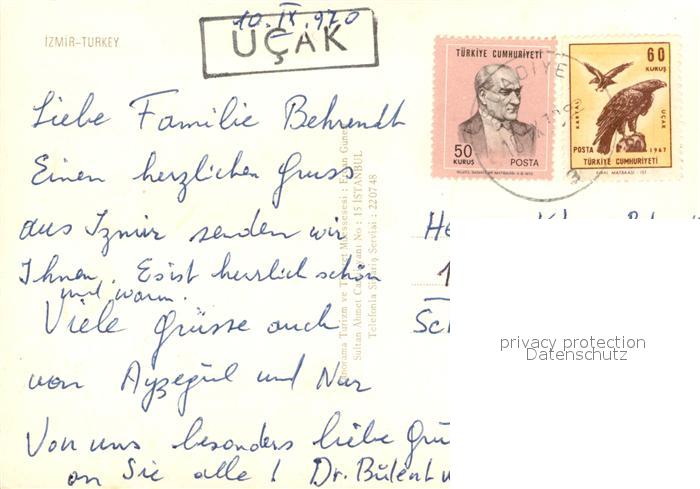 10. IX. 970
UÇAK
İZMİR-TURKEY
TÜRKİYE CUMHURİYETİ
50
KURUŞ
POSTA
60
KURUŞ
KARTAL
UÇAK
POSTA
1967
TÜRKİYE CUMHURİYETİ
Liebe Familie Behrendt
Einen herzlichen Gruss
aus Izmir senden wir
Ihnen. Es ist herrlich schön
und warm.
Viele Grüsse auch
von Ayşegül und Nur
Von uns besonders liebe Grü
an Sie alle! Dr. Bülent u
Sultan Ahmet No: 15 İSTANBUL
Telefonla Sipariş Servisi: 22 07 48
He
1
Sch
privacy protection
Datenschutz